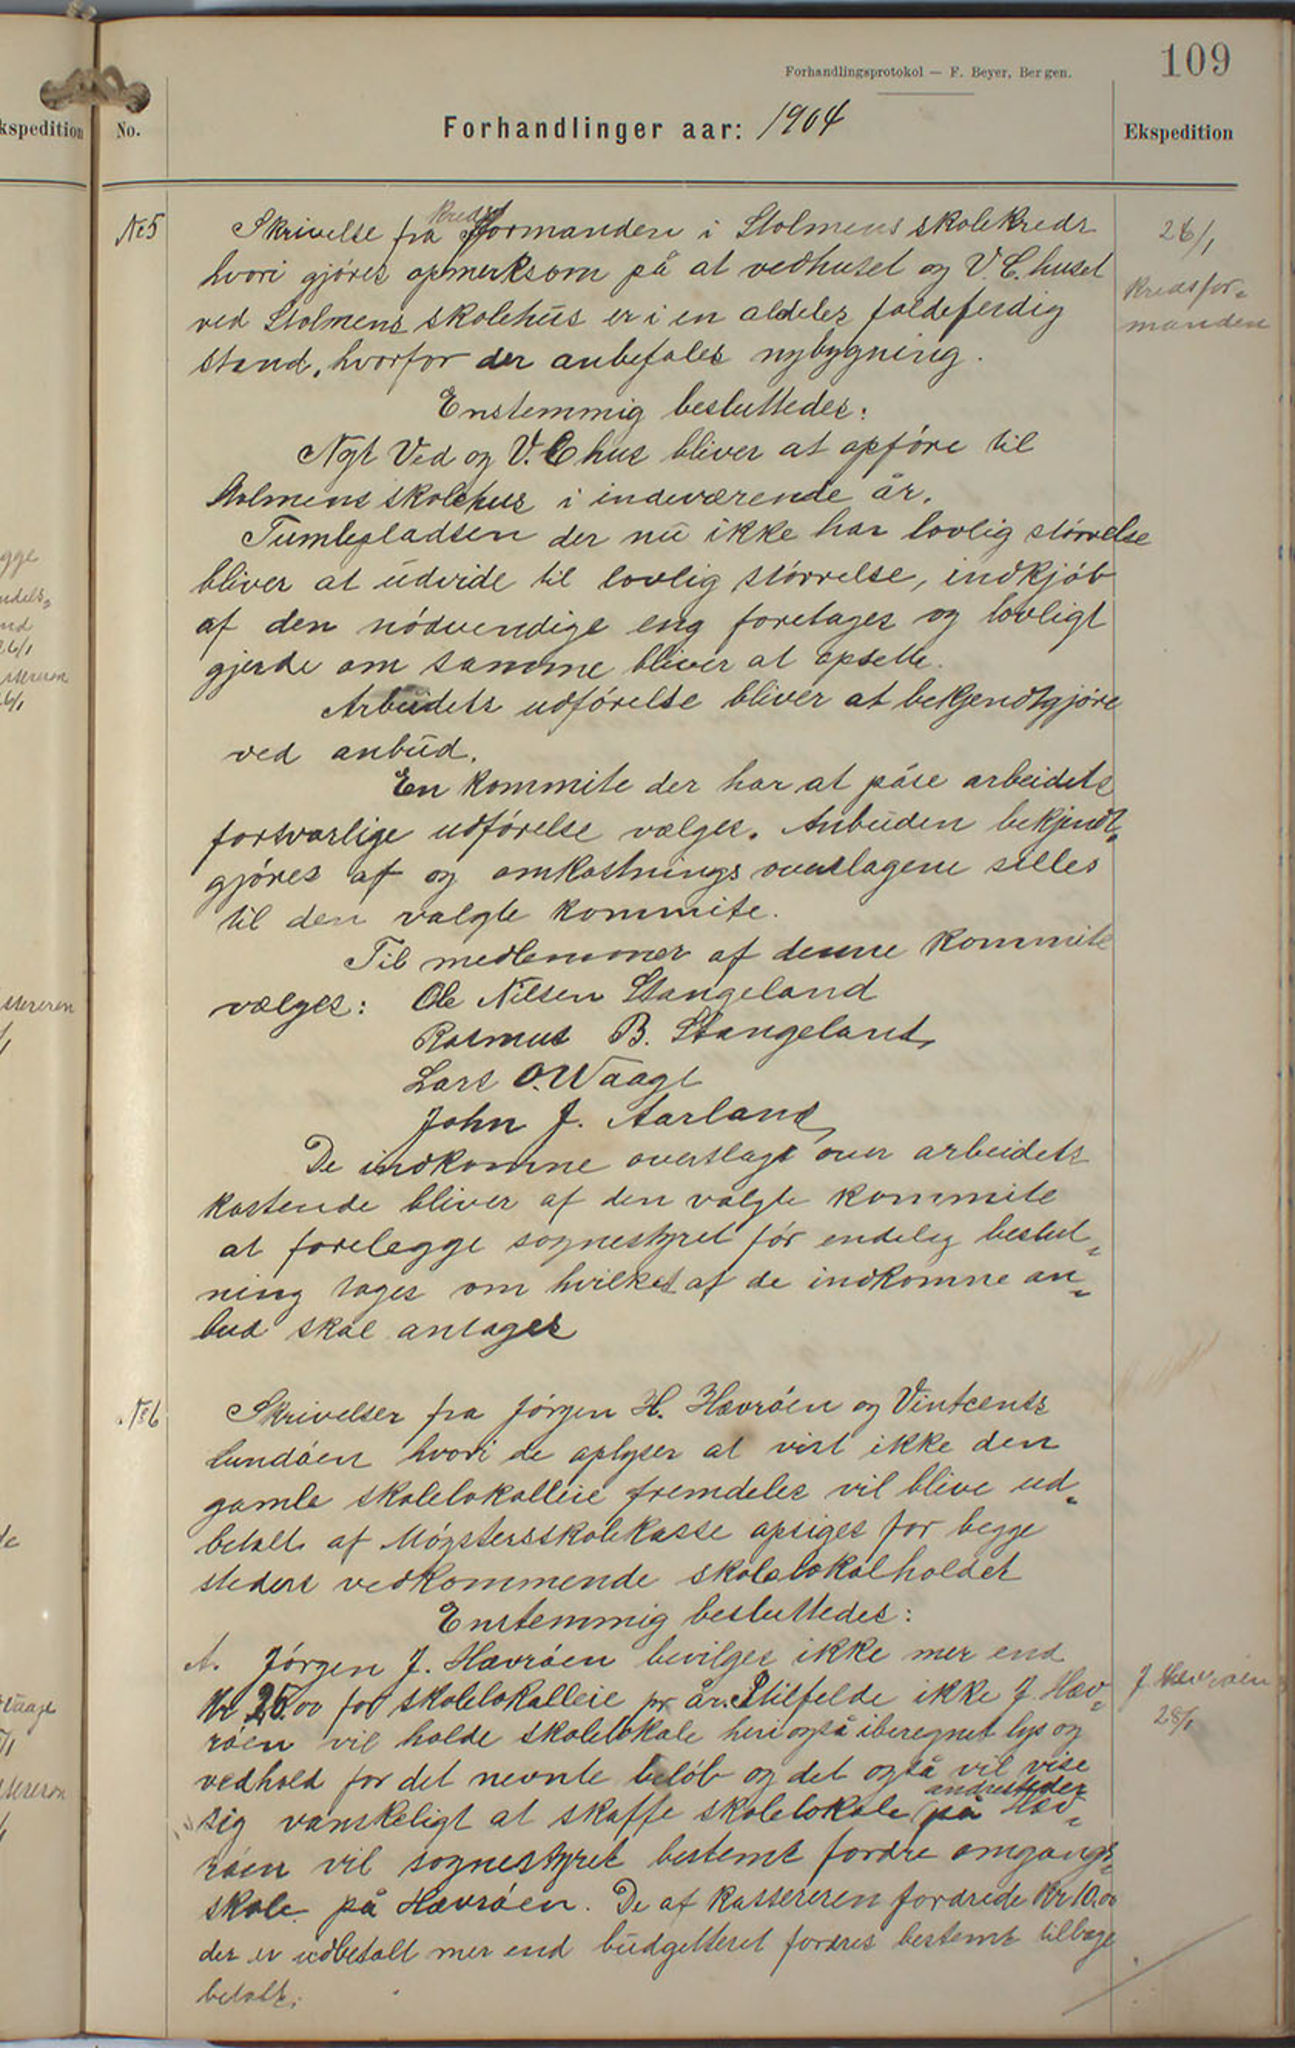 109
Forhandlingsprotokol — F. Beyer, Bergen.
kspedition
No.
Forhandlinger aar: 1904
Ekspedition
No 5
Skrivelse fra kreds formanden i Stolmens skolekreds
hvori gjøres opmerksom på at vedhuset og V.C. huset
ved Stolmens skolehus er i en aldeles faldeferdig
stand, hvorfor der anbefales nybygning.
26/1
Kredsfor=
manden
Enstemmig besluttedes:
Nyt Ved og V.C hus bliver at opføre til
Stolmens skolehus i indeværende år.
Tumlepladsen der nu ikke har lovlig størrelse
bliver at udvide til lovlig størrelse, indkjøb
af den nødvendige eng foretages og lovligt
gjerde om samme bliver at opsette.
Arbeidets udførelse bliver at bekjendtgjøre
ved anbud.
En kommite der har at påse arbeidets
forsvarlige udførelse vælges. Anbuden bekjendt=
gjøres af og omkostnings overslagene stilles
til den valgte kommite.
Til medlemmer af denne kommite
vælges: Ole Nilsen Stangeland
Rasmus B. Stangeland
Lars O. Waage
John J. Aarland
De indkomne overslag over arbeidets
kostende bliver af den valgte kommite
at forelegge sognestyret før endelig beslut=
ning tages om hvilket af de indkomne an=
bud skal antages
No 6
Skrivelser fra Jørgen H. Hævrøen og Vintcents
Lundøen hvori de oplyser at vist ikke den
gamle skolelokalleie fremdeles vil blive ud=
betalt af Møgsters skolekasse opsiges for begge
steders vedkommende skolelokalholdet
Enstemmig besluttedes:
A. Jørgen J. Hævrøen bevilges ikke mer end
Kr 25.00 for skolelokalleie pr år. I tilfelde ikke J. Hæv=
røen vil holde skolelokale heri også iberegnet lys og
vedhold for det nevnte beløb og det også vil vise
sig vanskeligt at skaffe skolelokale andresteder på Hæv=
røen vil sognestyret bestemt fordre omgangs=
skole på Hævrøen. De af kassereren fordrede Kr 10.00
der er udbetalt mer end budgetteret fordres bestemt tilbage
betalt.
J. Hævrøen
28/1